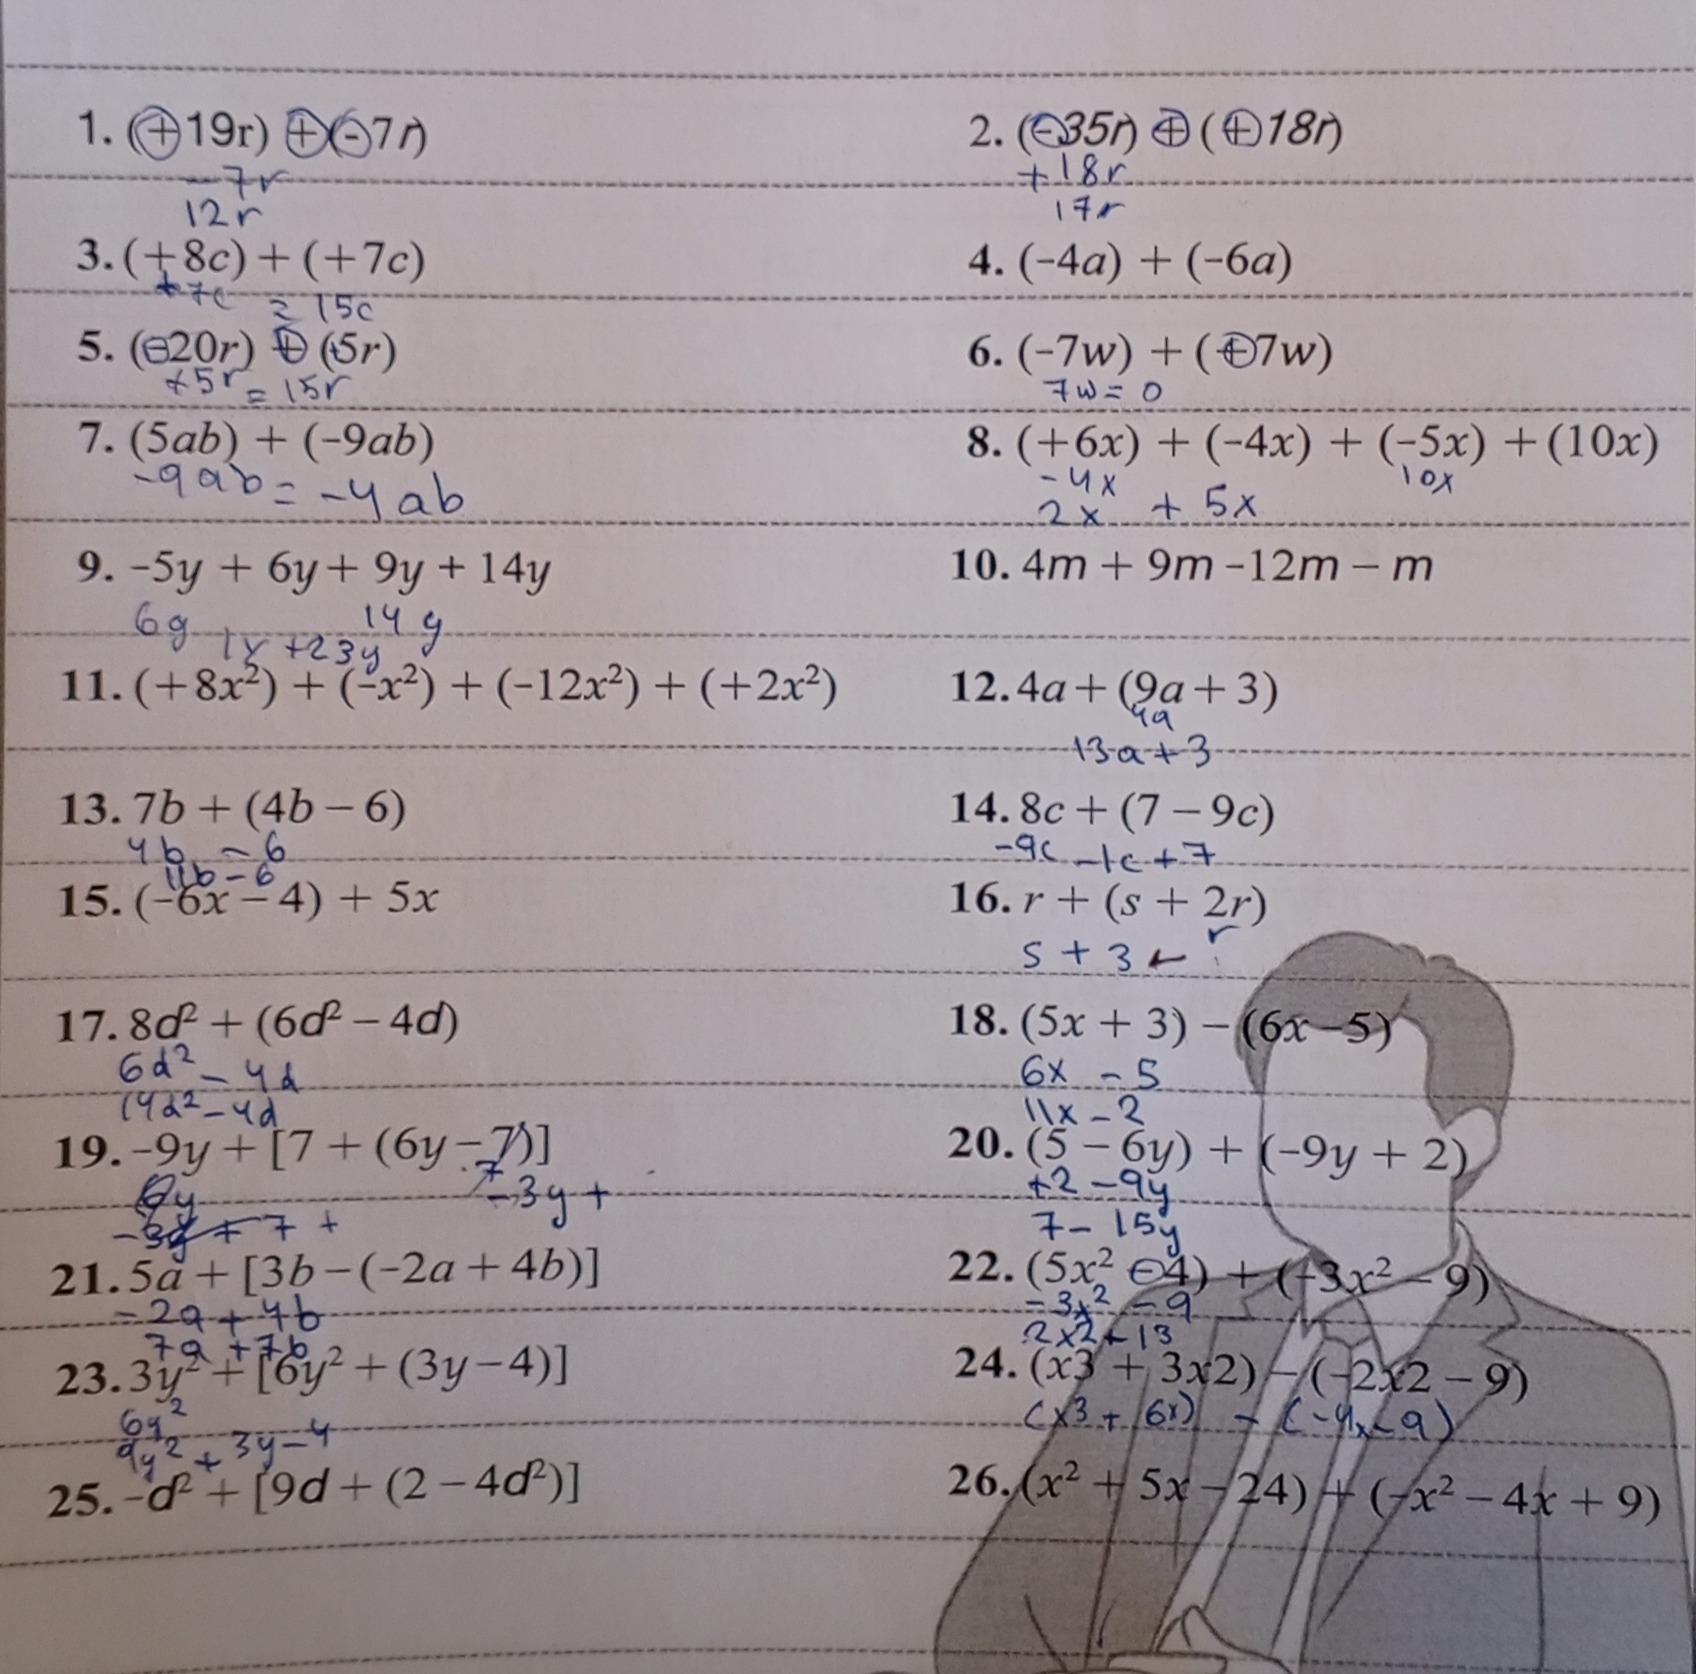 1. (+19r) + (-7r)
-7r
12r
2. (-35r) + (+18r)
+18r
17r
3. (+8c) + (+7c)
+7c = 15c
4. (-4a) + (-6a)
5. (-20r) + (+5r)
+5r = 15r
6. (-7w) + (+7w)
7w = 0
7. (5ab) + (-9ab)
-9ab = -4ab
8. (+6x) + (-4x) + (-5x) + (10x)
-4x 10x
2x + 5x
9. -5y + 6y + 9y + 14y
6y 14y
1y + 23y
10. 4m + 9m -12m - m
11. (+8x²) + (-x²) + (-12x²) + (+2x²)
12. 4a + (9a + 3)
4a
13a + 3
13. 7b + (4b - 6)
4b - 6
11b - 6
14. 8c + (7 - 9c)
-9c -1c + 7
15. (-6x - 4) + 5x
16. r + (s + 2r)
r
s + 3r
17. 8d² + (6d² - 4d)
6d² - 4d
14d² - 4d
18. (5x + 3) - (6x - 5)
6x - 5
11x - 2
19. -9y + [7 + (6y - 7)]
6y 7 -3y +
-3y + 7 +
20. (5 - 6y) + (-9y + 2)
+2 - 9y
7 - 15y
21. 5a + [3b - (-2a + 4b)]
-2a + 4b
7a + 7b
22. (5x² - 4) + (-3x² - 9)
-3x² - 9
2x2 + 13
23. 3y² + [6y² + (3y - 4)]
6y²
9y² + 3y - 4
24. (x3 + 3x2) - (-2x2 - 9)
(x3 + 6x) - (-4x - 9)
25. -d² + [9d + (2 - 4d²)]
26. (x² + 5x - 24) + (-x² - 4x + 9)